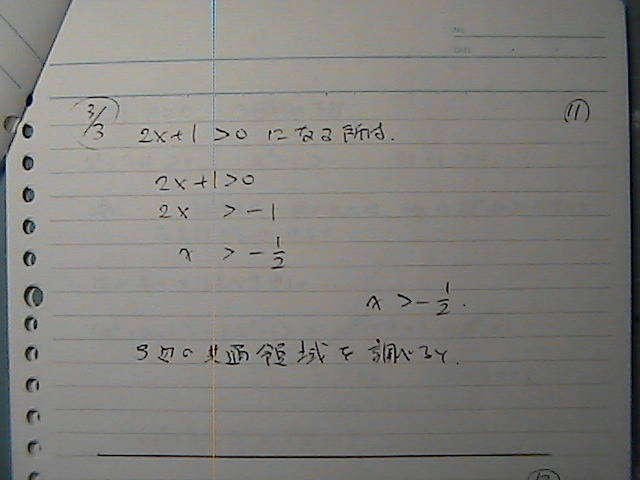 NO.
DATE
3/3
⑪
2x+1>0になる所は.
2x+1>0
2x > -1
x > -1/2
x > -1/2.
3辺の共通領域を調べると.